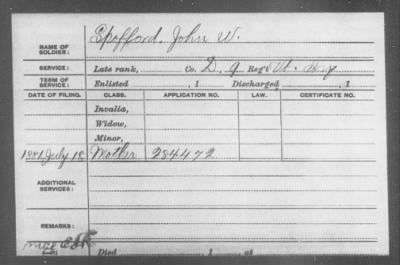 NAME OF SOLDIER: Spofford, John W.
SERVICE: Late rank, Co. D, 9 Reg't
TERM OF SERVICE: Enlisted , 1 Discharged , 1
DATE OF FILING. CLASS. APPLICATION NO. LAW. CERTIFICATE NO.
Invalid,
Widow,
Minor,
1881 July 18 Mother 284472
ADDITIONAL SERVICES:
REMARKS:
Died , 1 , at